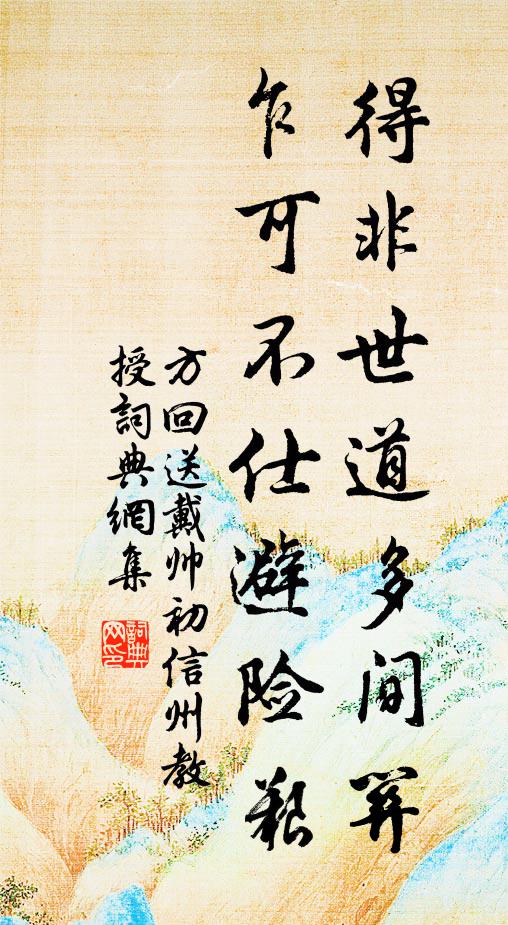 得非世道多间关
乍可不仕避险艰
方回送戴帅初信州教
授詞典網集
詞典
网印